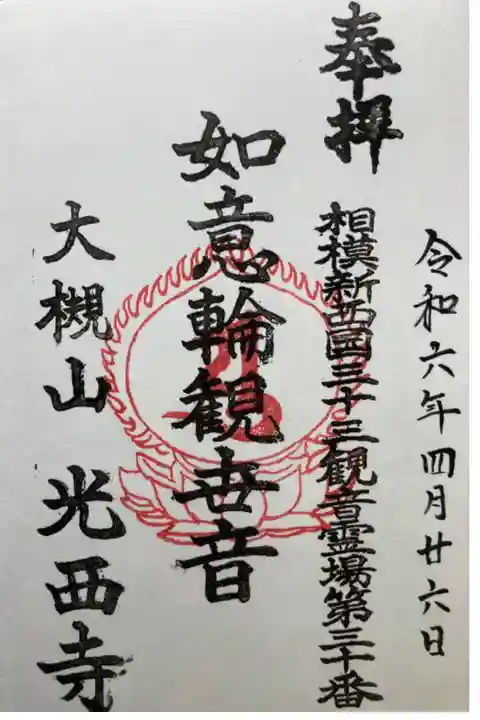 令和六年四月廿六日
奉拝
相模新西国三十三観音霊場第三十番
如意輪観世音
大槻山 光西寺